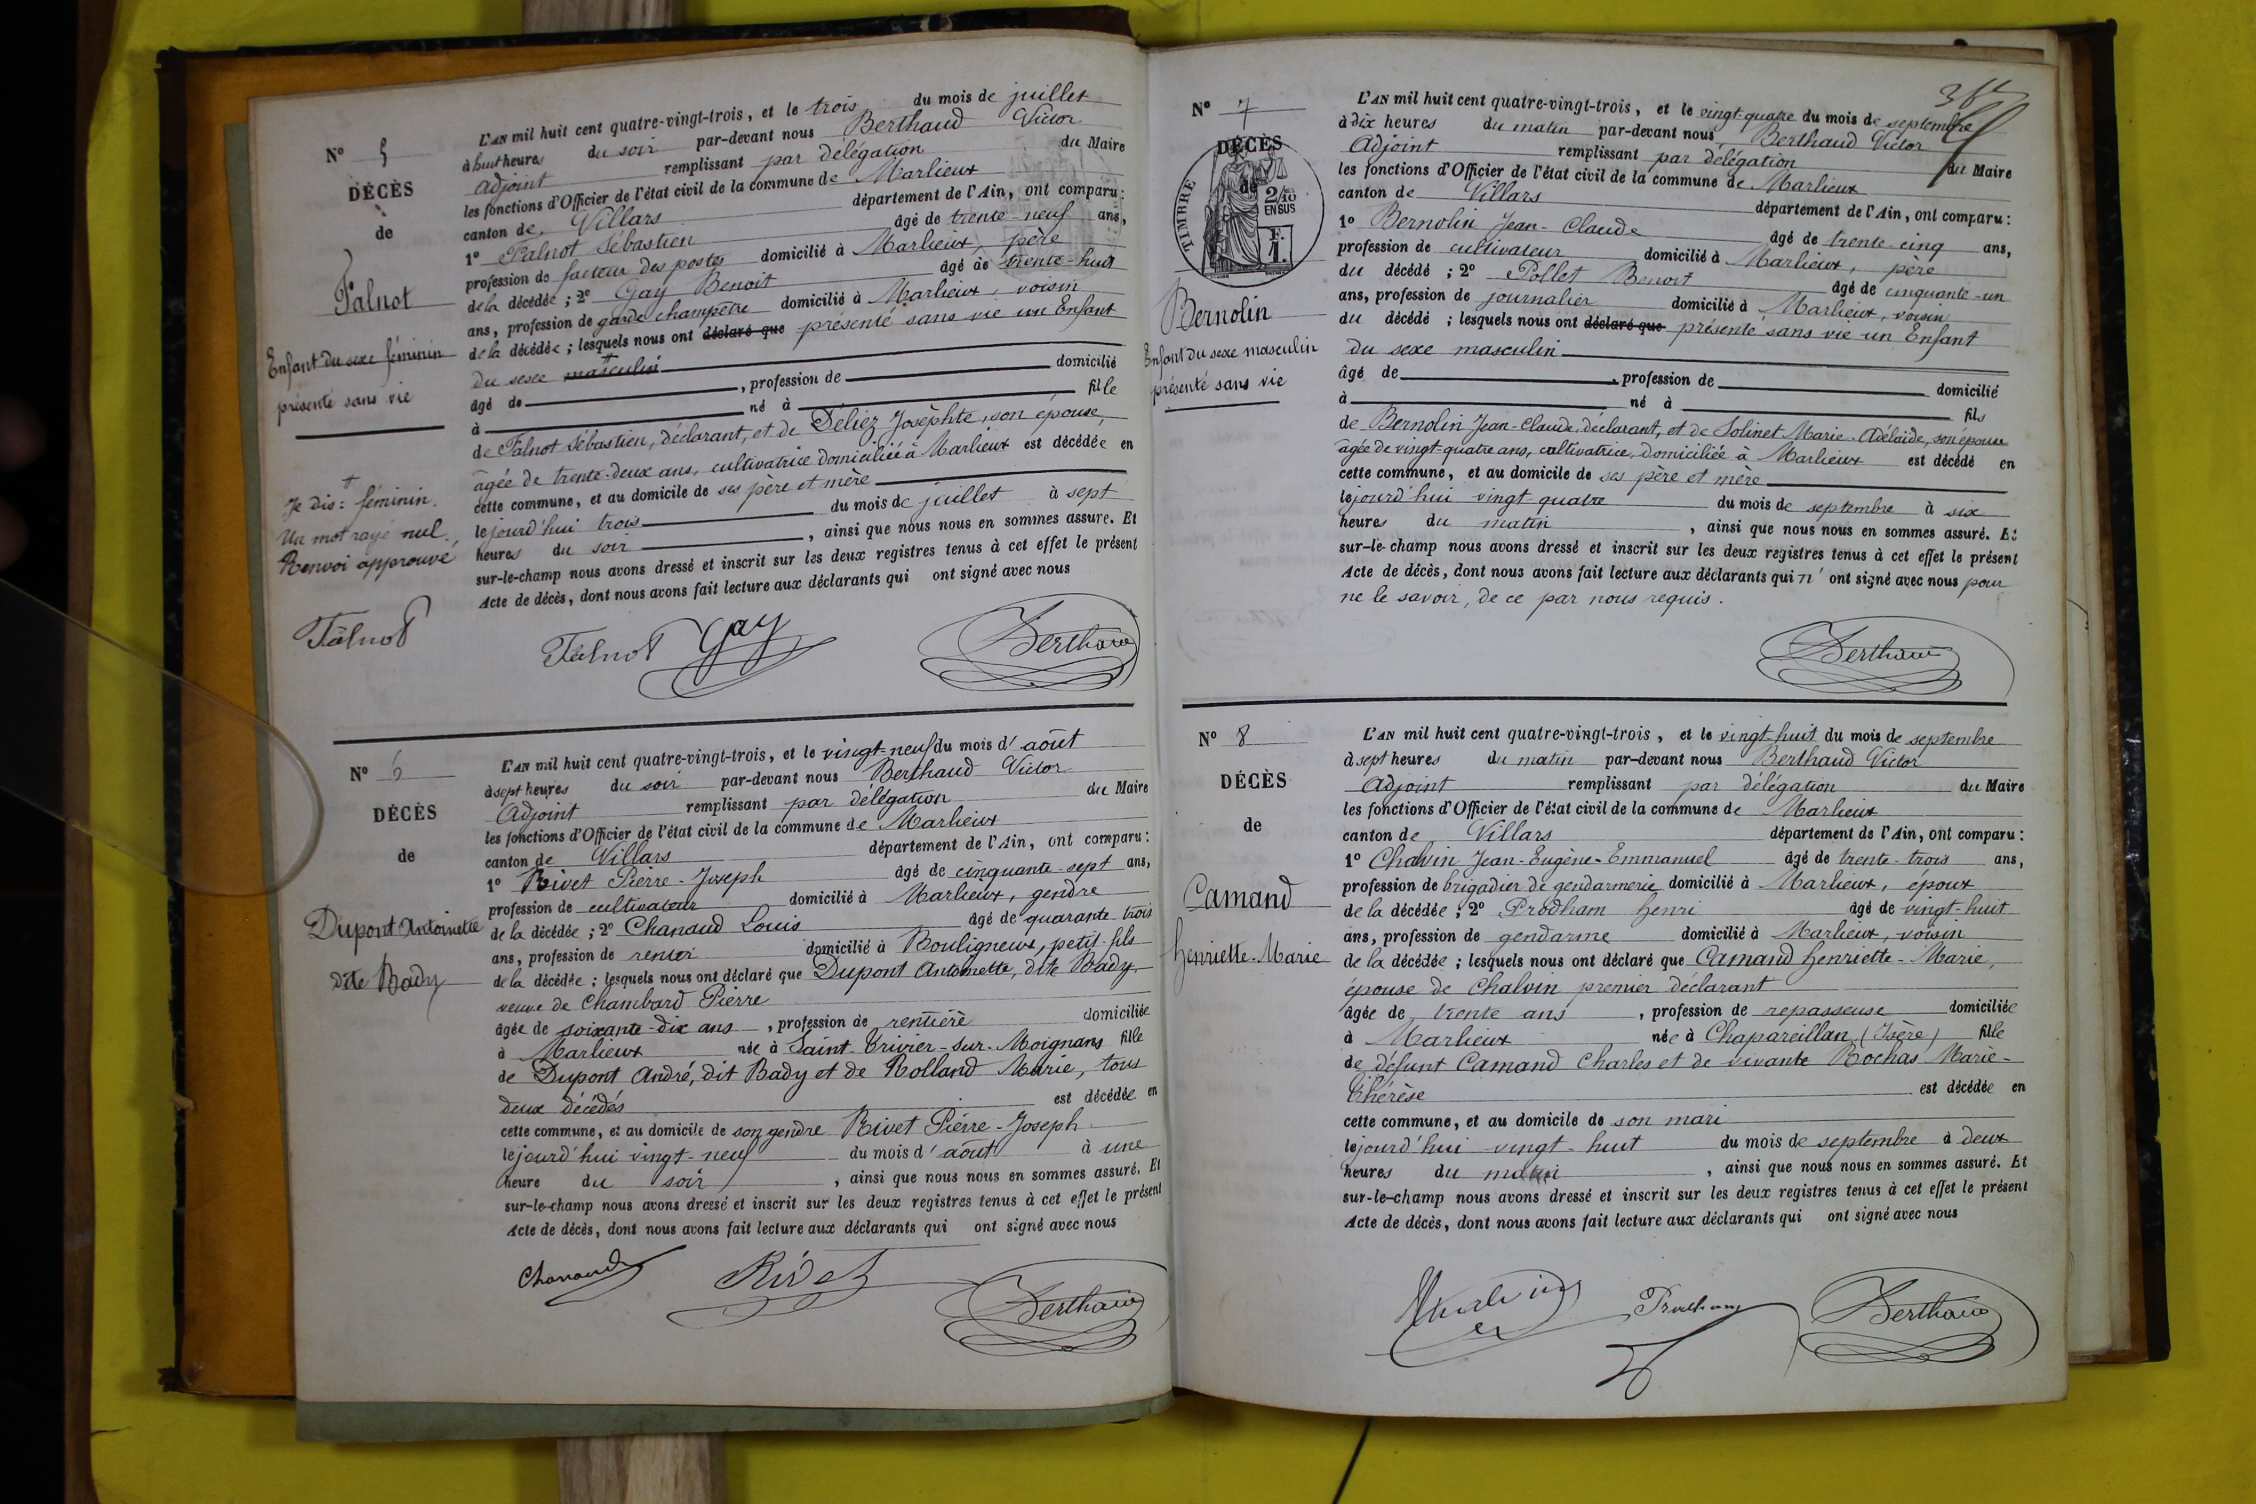 N° 5
DÉCÈS
de
Falnot
Enfant du sexe féminin
présenté sans vie
Je dis : féminin.
Un mot rayé nul.
Renvoi approuvé
Falnot
L'AN mil huit cent quatre-vingt-trois, et le trois du mois de juillet
à huit heures du soir par-devant nous Berthaud Victor
Adjoint remplissant par délégation du Maire
les fonctions d'Officier de l'état civil de la commune de Marlieux
canton de Villars département de l'Ain, ont comparu :
1° Falnot Sébastien âgé de trente-neuf ans,
profession de facteur des postes domicilié à Marlieux, père
de la décédée ; 2° Gay Benoit âgé de trente-huit
ans, profession de garde champêtre domicilié à Marlieux, voisin
de la décédée ; lesquels nous ont déclaré que présenté sans vie un Enfant
du sexe masculin
âgé de , profession de domicilié
à né à fille
de Falnot Sébastien, déclarant, et de Déliez Josephte, son épouse,
âgée de trente-deux ans, cultivatrice domiciliée à Marlieux est décédée en
cette commune, et au domicile de ses père et mère
le jourd'hui trois du mois de juillet à sept
heures du soir , ainsi que nous nous en sommes assuré. Et
sur-le-champ nous avons dressé et inscrit sur les deux registres tenus à cet effet le présent
Acte de décès, dont nous avons fait lecture aux déclarants qui ont signé avec nous
Falnot Gay Berthaud
N° 6
DÉCÈS
de
Dupont Antoinette
dite Bady
L'AN mil huit cent quatre-vingt-trois, et le vingt-neuf du mois d'août
à sept heures du soir par-devant nous Berthaud Victor
Adjoint remplissant par délégation du Maire
les fonctions d'Officier de l'état civil de la commune de Marlieux
canton de Villars département de l'Ain, ont comparu :
1° Rivet Pierre-Joseph âgé de cinquante-sept ans,
profession de cultivateur domicilié à Marlieux, gendre
de la décédée ; 2° Chanaud Louis âgé de quarante-trois
ans, profession de rentier domicilié à Bouligneux, petit-fils
de la décédée ; lesquels nous ont déclaré que Dupont Antoinette, dite Bady,
veuve de Chambard Pierre
âgée de soixante-dix ans , profession de rentière domiciliée
à Marlieux née à Saint-Trivier-sur-Moignans fille
de Dupont André, dit Bady et de Rolland Marie, tous
deux décédés est décédée en
cette commune, et au domicile de son gendre Rivet Pierre-Joseph
le jourd'hui vingt-neuf du mois d'août à une
heure du soir , ainsi que nous nous en sommes assuré. Et
sur-le-champ nous avons dressé et inscrit sur les deux registres tenus à cet effet le présent
Acte de décès, dont nous avons fait lecture aux déclarants qui ont signé avec nous
Chanaud Rivet Berthaud
N° 7
DÉCÈS
de
TIMBRE
2/10
EN SUS
F.
1.
Bernolin
Enfant du sexe masculin
présenté sans vie
L'AN mil huit cent quatre-vingt-trois, et le vingt-quatre du mois de septembre
à dix heures du matin par-devant nous Berthaud Victor
Adjoint remplissant par délégation du Maire
les fonctions d'Officier de l'état civil de la commune de Marlieux
canton de Villars département de l'Ain, ont comparu :
1° Bernolin Jean-Claude âgé de trente-cinq ans,
profession de cultivateur domicilié à Marlieux, père
du décédé ; 2° Pollet Benoit âgé de cinquante-un
ans, profession de journalier domicilié à Marlieux, voisin
du décédé ; lesquels nous ont déclaré que présenté sans vie un Enfant
du sexe masculin
âgé de , profession de domicilié
à né à fils
de Bernolin Jean-Claude, déclarant, et de Solinet Marie-Adélaïde, son épouse
âgée de vingt-quatre ans, cultivatrice, domiciliée à Marlieux est décédé en
cette commune, et au domicile de ses père et mère
le jourd'hui vingt-quatre du mois de septembre à six
heures du matin , ainsi que nous nous en sommes assuré. Et
sur-le-champ nous avons dressé et inscrit sur les deux registres tenus à cet effet le présent
Acte de décès, dont nous avons fait lecture aux déclarants qui n'ont signé avec nous pour
ne le savoir, de ce par nous requis.
Berthaud
N° 8
DÉCÈS
de
Camand
Henriette-Marie
L'AN mil huit cent quatre-vingt-trois, et le vingt-huit du mois de septembre
à sept heures du matin par-devant nous Berthaud Victor
Adjoint remplissant par délégation du Maire
les fonctions d'Officier de l'état civil de la commune de Marlieux
canton de Villars département de l'Ain, ont comparu :
1° Chalvin Jean-Eugène-Emmanuel âgé de trente-trois ans,
profession de brigadier de gendarmerie domicilié à Marlieux, époux
de la décédée ; 2° Prodham Henri âgé de vingt-huit
ans, profession de gendarme domicilié à Marlieux, voisin
de la décédée ; lesquels nous ont déclaré que Camand Henriette-Marie,
épouse de Chalvin premier déclarant
âgée de trente ans , profession de repasseuse domiciliée
à Marlieux née à Chapareillan (Isère) fille
de défunt Camand Charles et de vivante Rochas Marie-
Thérèse est décédée en
cette commune, et au domicile de son mari
le jourd'hui vingt-huit du mois de septembre à deux
heures du matin , ainsi que nous nous en sommes assuré. Et
sur-le-champ nous avons dressé et inscrit sur les deux registres tenus à cet effet le présent
Acte de décès, dont nous avons fait lecture aux déclarants qui ont signé avec nous
Prodham Berthaud